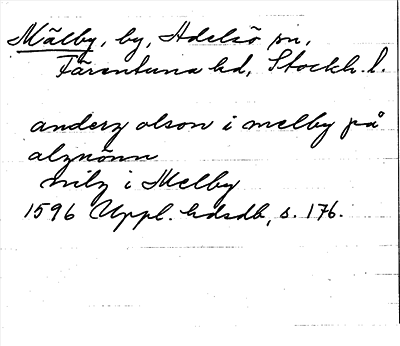 Mälby, by, Adelsö sn,
Färentuna hd, Stockh. l.
anderz olson i melby på
alznönn
nilz i Melby
1596 Uppl. hdsdb, s. 176.